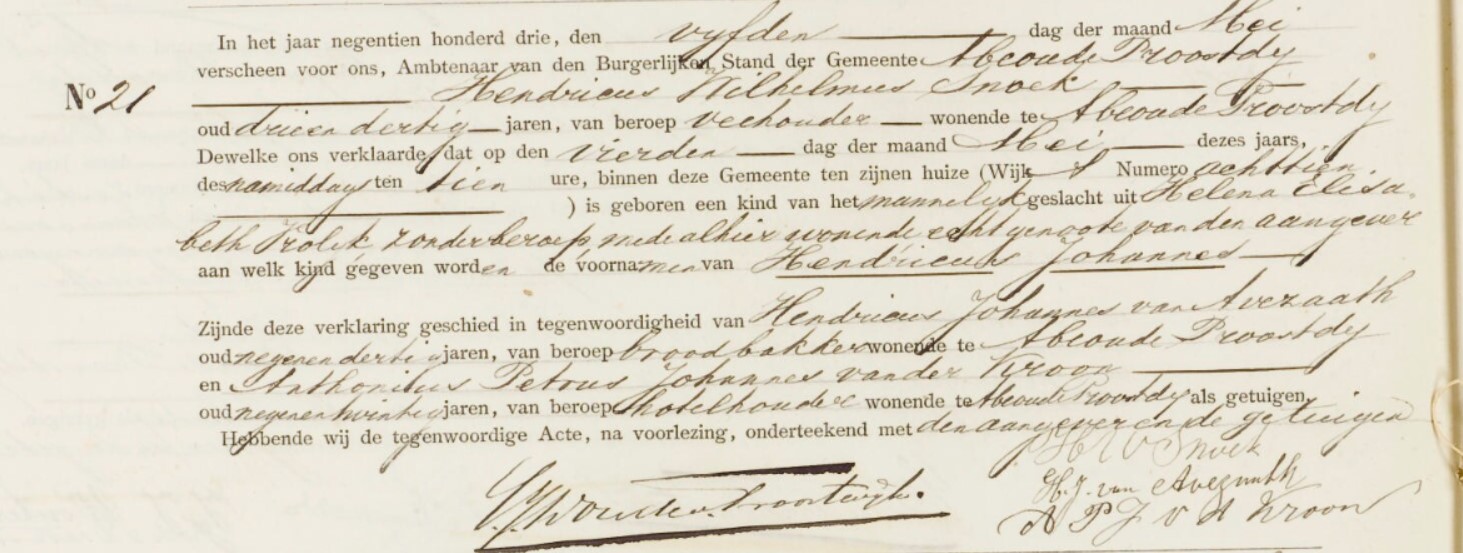 In het jaar negentien honderd drie, den vyfden dag der maand Mei
verscheen voor ons, Ambtenaar van den Burgerlijken Stand der Gemeente Abcoude Proostdy
No 21
Hendricus Wilhelmus Snoek
oud drieen dertig jaren, van beroep veehouder wonende te Abcoude Proostdy
Dewelke ons verklaarde, dat op den vierden dag der maand Mei dezes jaars,
des namiddags ten tien ure, binnen deze Gemeente ten zijnen huize (Wijk Numero achttien
) is geboren een kind van het mannelyk geslacht uit Helena Elisa
beth Kolik, zonder beroep, mede alhier wonende echtgenoote van den aangever
aan welk kind gegeven worden de voornamen van Hendricus Johannes
Zijnde deze verklaring geschied in tegenwoordigheid van Hendricus Johannes van Avezaath
oud negenen dertig jaren, van beroep broodbakker wonende te Abcoude Proostdy
en Anthonius Petrus Johannes van der Kroon
oud negenen twintig jaren, van beroep hotelhouder wonende te Abcoude Proostdy als getuigen,
Hebbende wij de tegenwoordige Acte, na voorlezing, onderteekend met den aangever en de getuigen
H W Snoek
H. J. van Avezaath
A P J v d Kroon